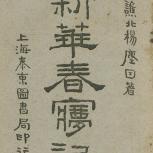 譙北楊塵因著
新華春夢記
上海泰東圖書局印